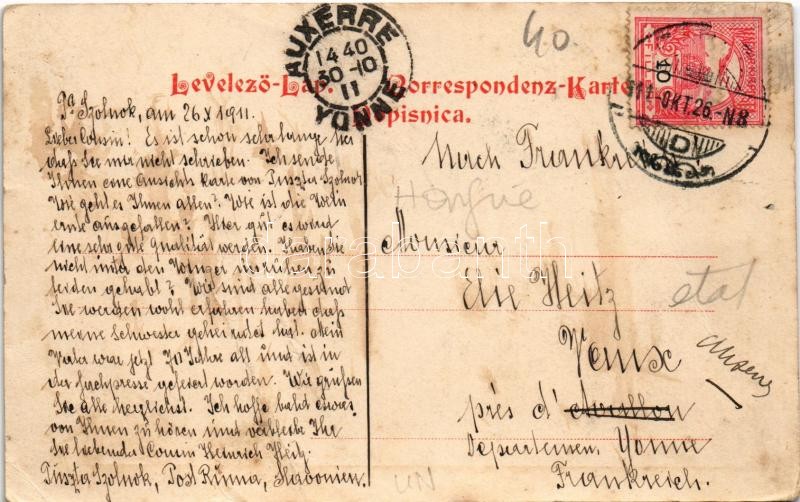 AUXERRE
14 40
30-10
11
YONNE
40.
FILL
10
911 OKT 26.-N8
D
Levelező-Lap.
Correspondenz-Karte
Dopisnica.
Pa Szolnok, am 26 X 1911.
Lieber Cousin! Es ist schon sehr lange her
dass Sie mir nicht schrieben. Ich sende
Ihnen eine Ansichts karte von Puszta-Szolnok
Wie geht es Ihnen allen? Wie ist die Wein
ernte ausgefallen? Hier gut es wird
eine sehr gute Qualität werden. Haben Sie
nicht unter den Winzer unruhen zu
leiden gehabt? Wir sind alle gesund
Sie werden wohl erfahren haben dass
meine Schwester geheiratet hat. Mein
Vater war jetzt 70 Jahre alt und ist in
der Fachpresse gefeiert worden. Wir grüssen
Sie alle herzlichst. Ich hoffe bald etwas
von Ihnen zu hören und verbleibe Ihr
Sie liebender Cousin Heinrich Heitz.
Puszta-Szolnok, Post Ruma, Slavonien.
Nach Frankreich
Hongrie
Monsieur
Elie Heitz
etat
Vaux
près d' Avallon
Departemen. Yonne
Frankreich.
darabanth